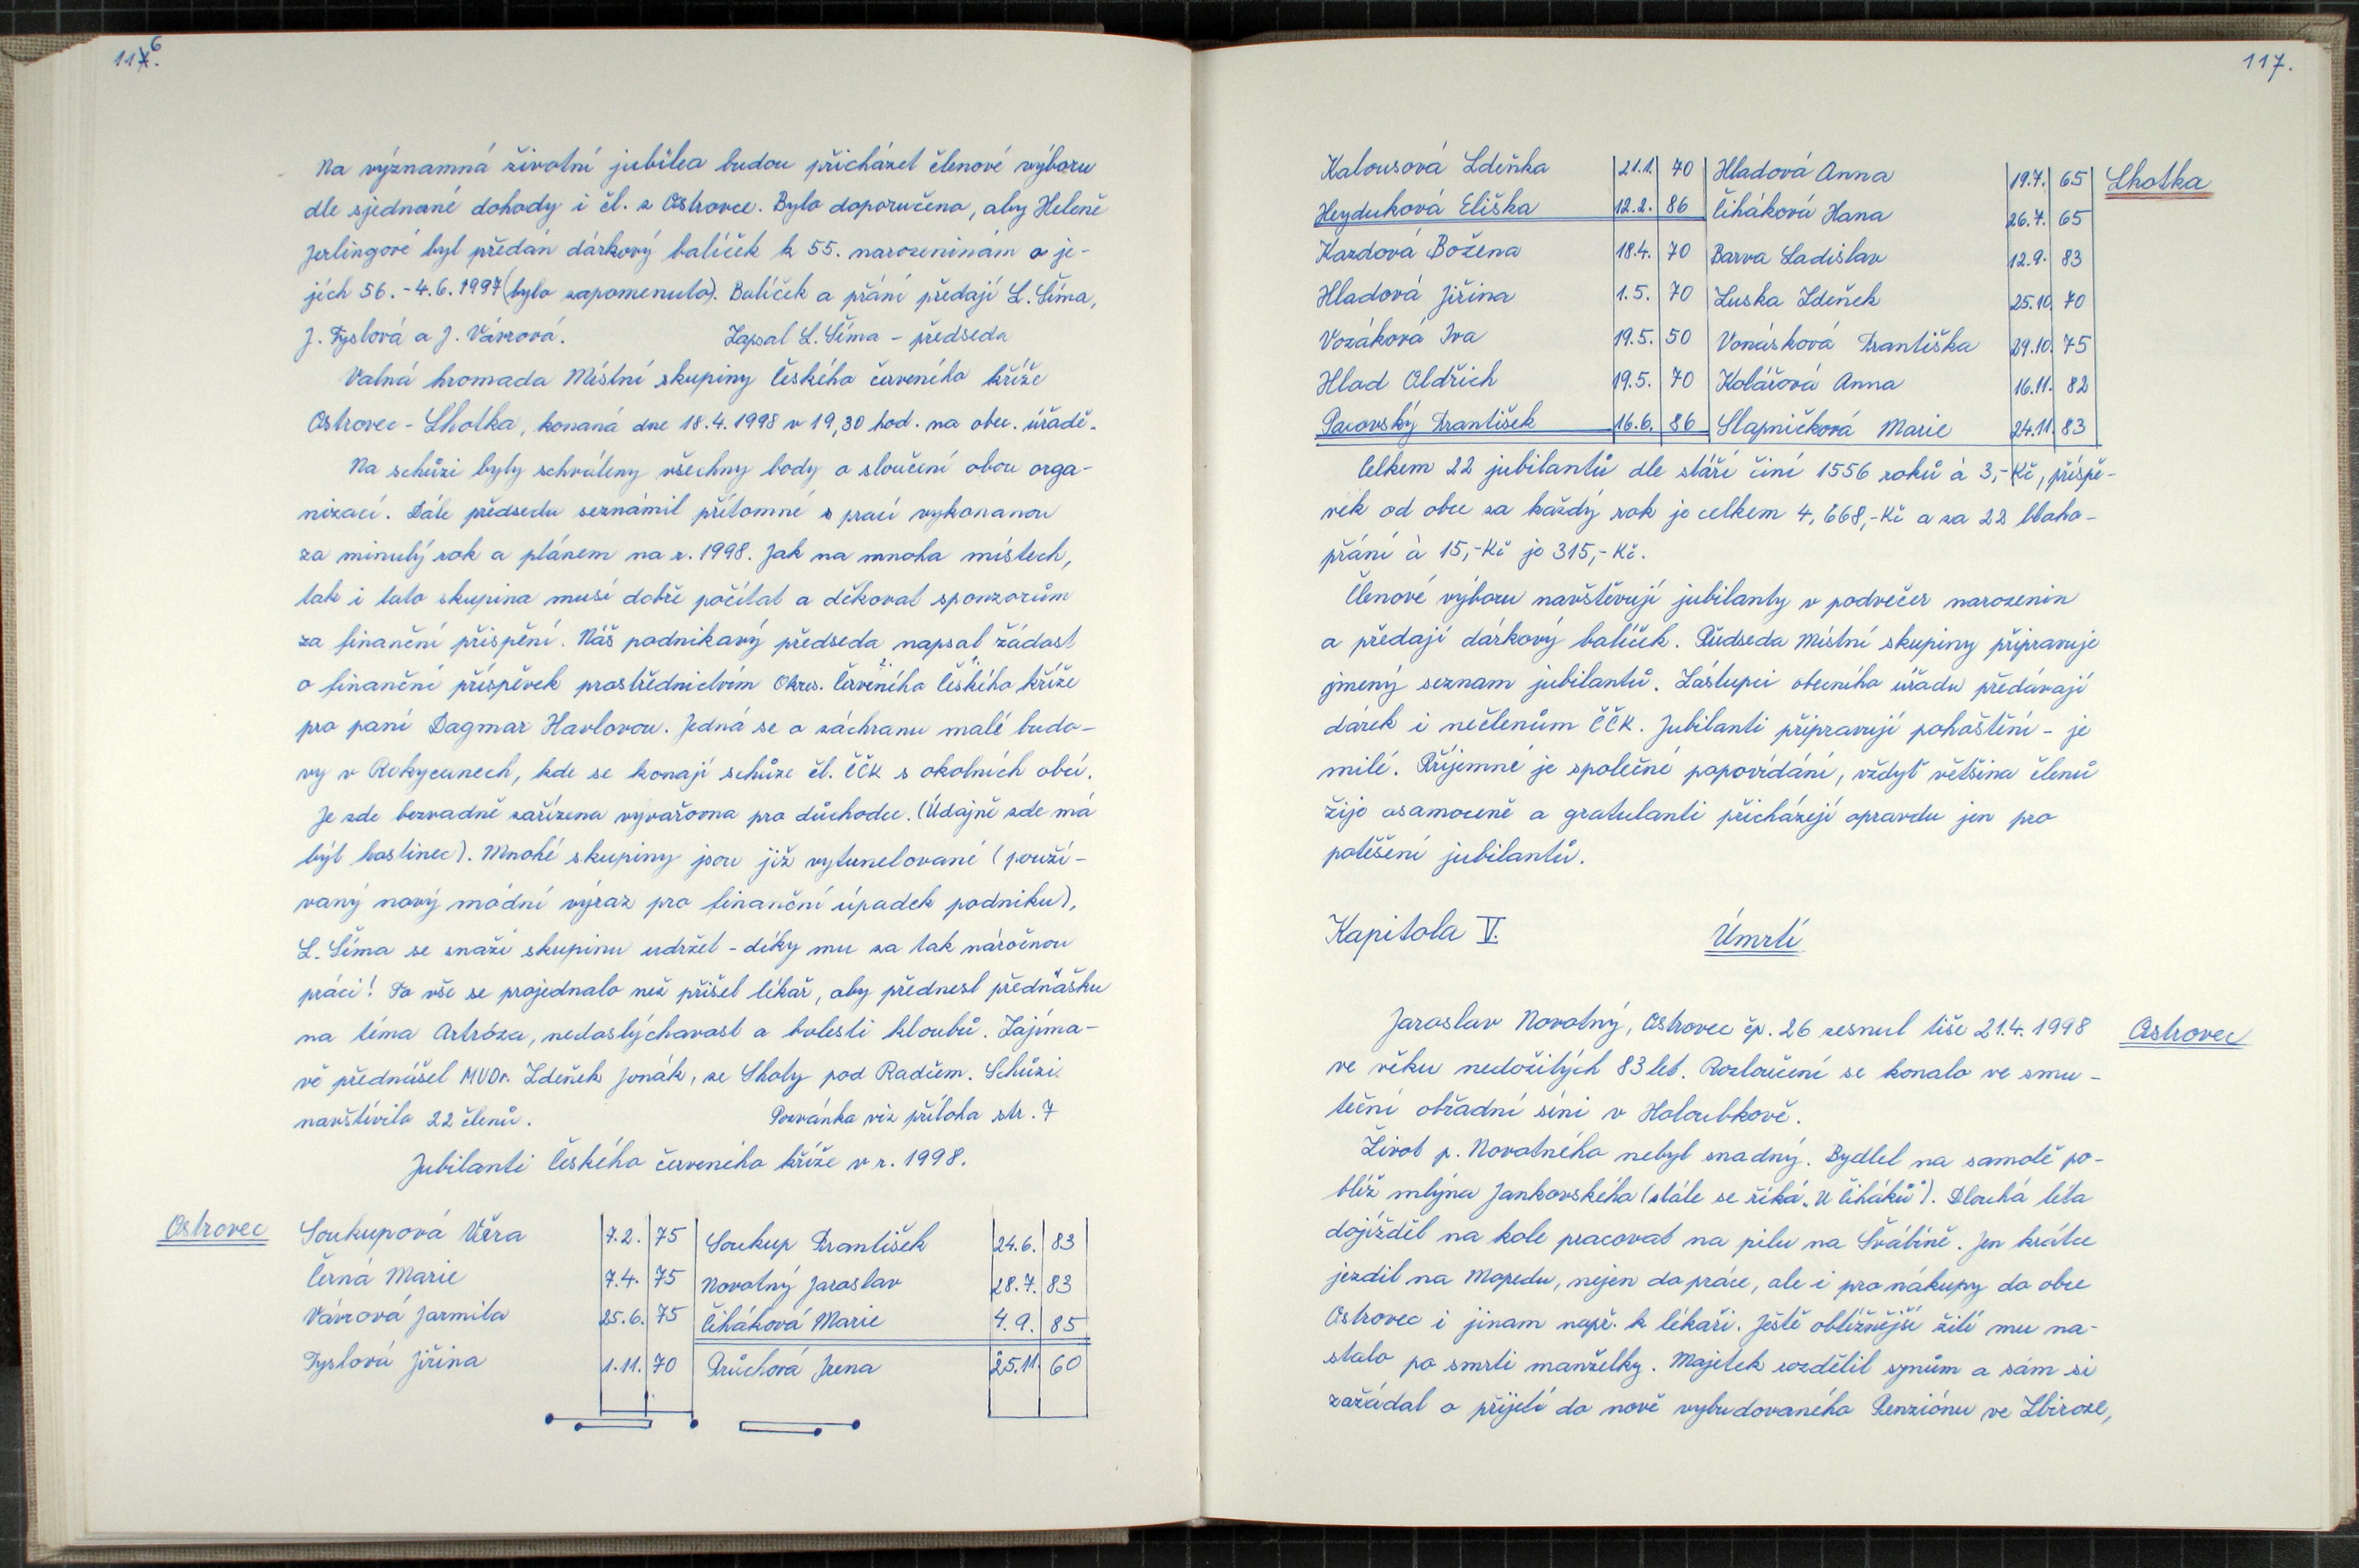 116.
Na významná životní jubilea budou přicházet členové výboru
dle sjednané dohody i čl. z Ostrovce. Bylo doporučeno, aby Heleně
Jerlingové byl předán dárkový balíček k 55. narozeninám a je-
jich 56. - 4.6.1997 (bylo zapomenuto). Balíček a přání předají L. Šíma,
J. Fyslová a J. Vávrová. Zapsal L. Šíma - předseda
Valná hromada Místní skupiny Českého červeného kříže
Ostrovec - Lhotka, konaná dne 18.4.1998 v 19,30 hod. na obec. úřadě.
Na schůzi byly schváleny všechny body o sloučení obou orga-
nizací. Dále předseda seznámil přítomné s prací vykonanou
za minulý rok a plánem na r. 1998. Jak na mnoha místech,
tak i tato skupina musí dobře počítat a děkovat sponzorům
za finanční přispění. Náš podnikavý předseda napsal žádost
o finanční příspěvek prostřednictvím Okres. Červeného Českého kříže
pro paní Dagmar Havlovou. Jedná se o záchranu malé budo-
vy v Rokycanech, kde se konají schůze čl. ČČK s okolních obcí.
Je zde bezvadně zařízena vyvařovna pro důchodce. (Údajně zde má
být hostinec). Mnohé skupiny jsou již vytunelované (použí-
vaný nový módní výraz pro finanční úpadek podniku),
L. Šíma se snaží skupinu udržet - díky mu za tak náročnou
práci! To vše se projednalo než přišel lékař, aby přednesl přednášku
na téma Artróza, nedoslýchavost a bolesti kloubů. Zajíma-
vě přednášel MUDr. Zdeňek Jonák, ze Lhoty pod Radčem. Schůzi
navštívilo 22 členů. Pozvánka viz příloha str. 7
Jubilanti Českého červeného kříže v r. 1998.
Ostrovec Soukupová Věra 7.2. 75 Soukup František 24.6. 83
Černá Marie 7.4. 75 Novotný Jaroslav 28.7. 83
Vávrová Jarmila 25.6. 75 Čiháková Marie 4.9. 85
Fyslová Jiřina 1.11. 70 Průchová Irena 25.11. 60
117.
Kalousová Zdeňka 21.1. 70 Hladová Anna 19.7. 65 Lhotka
Heyduková Eliška 12.2. 86 Čiháková Hana 26.7. 65
Kazdová Božena 18.4. 70 Barva Ladislav 12.9. 83
Hladová Jiřina 1.5. 70 Luska Zdeňek 25.10. 70
Vozáková Iva 19.5. 50 Vonásková Františka 29.10. 75
Hlad Oldřich 19.5. 70 Kolářová Anna 16.11. 82
Pacovský František 16.6. 86 Slapničková Marie 24.11. 83
Celkem 22 jubilantů dle stáří činí 1556 roků à 3,- Kč, příspě-
vek od obce za každý rok je celkem 4,668,- Kč a za 22 blaho-
přání à 15,- Kč je 315,- Kč.
Členové výboru navštěvují jubilanty v podvečer narozenin
a předají dárkový balíček. Předseda Místní skupiny připravuje
jmený seznam jubilantů. Zástupci obecního úřadu předávají
dárek i nečlenům ČČK. Jubilanti připravují pohoštění - je
milé. Příjemné je společné popovídání, vždyť většina členů
žije osamoceně a gratulanti přicházejí opravdu jen pro
potěšení jubilantů.
Kapitola V. Úmrtí
Jaroslav Novotný, Ostrovec čp. 26 zesnul tiše 21.4.1998 Ostrovec
ve věku nedožitých 83 let. Rozloučení se konalo ve smu-
teční obřadní síni v Holoubkově.
Život p. Novotného nebyl snadný. Bydlel na samotě po-
blíž mlýna Jankovského (stále se říká „U Čiháků"). Dlouhá léta
dojížděl na kole pracovat na pilu na Švábíně. Jen krátce
jezdil na Mopedu, nejen do práce, ale i pro nákupy do obce
Ostrovec i jinam např. k lékaři. Ještě obtížnější žití mu na-
stalo po smrti manželky. Majetek rozdělil synům a sám si
zažádal o přijetí do nově vybudovaného Penziónu ve Zbiroze,